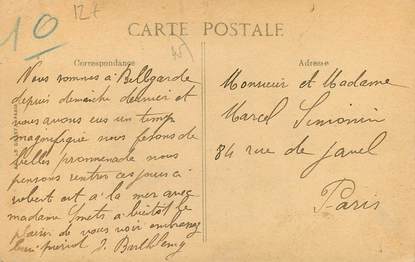 12 +
10
45
CARTE POSTALE
Correspondance
Nous sommes à Bellgarde
depuis dimanche dernier et
nous avons eus un temps
magnifique nous fetons de
belles promenade nous
pensons rentres ces jours à
robert ont à la mer avec
madame mets à bientot le
plaisir de vous voir
J. Barthlemy
Adresse
Monsieur et Madame
Marcel Simonin
84 rue de Javel
Paris